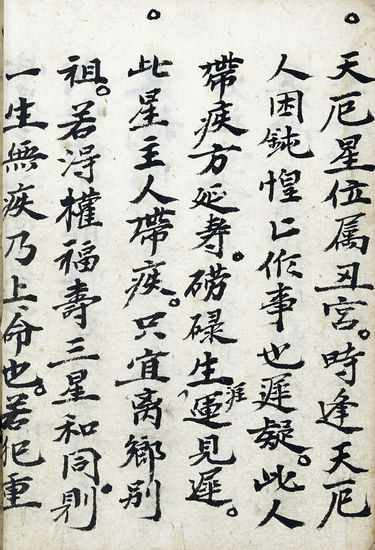 天厄星位属丑宮。時逢天厄
人困鈍惶〻作事也遲疑。此人
帶疾方延寿。碌生涯運見遲。
此星主人帶疾。只宜离鄉别
祖。若淂權福壽三星和同則
一生無疾乃上命也。若犯重